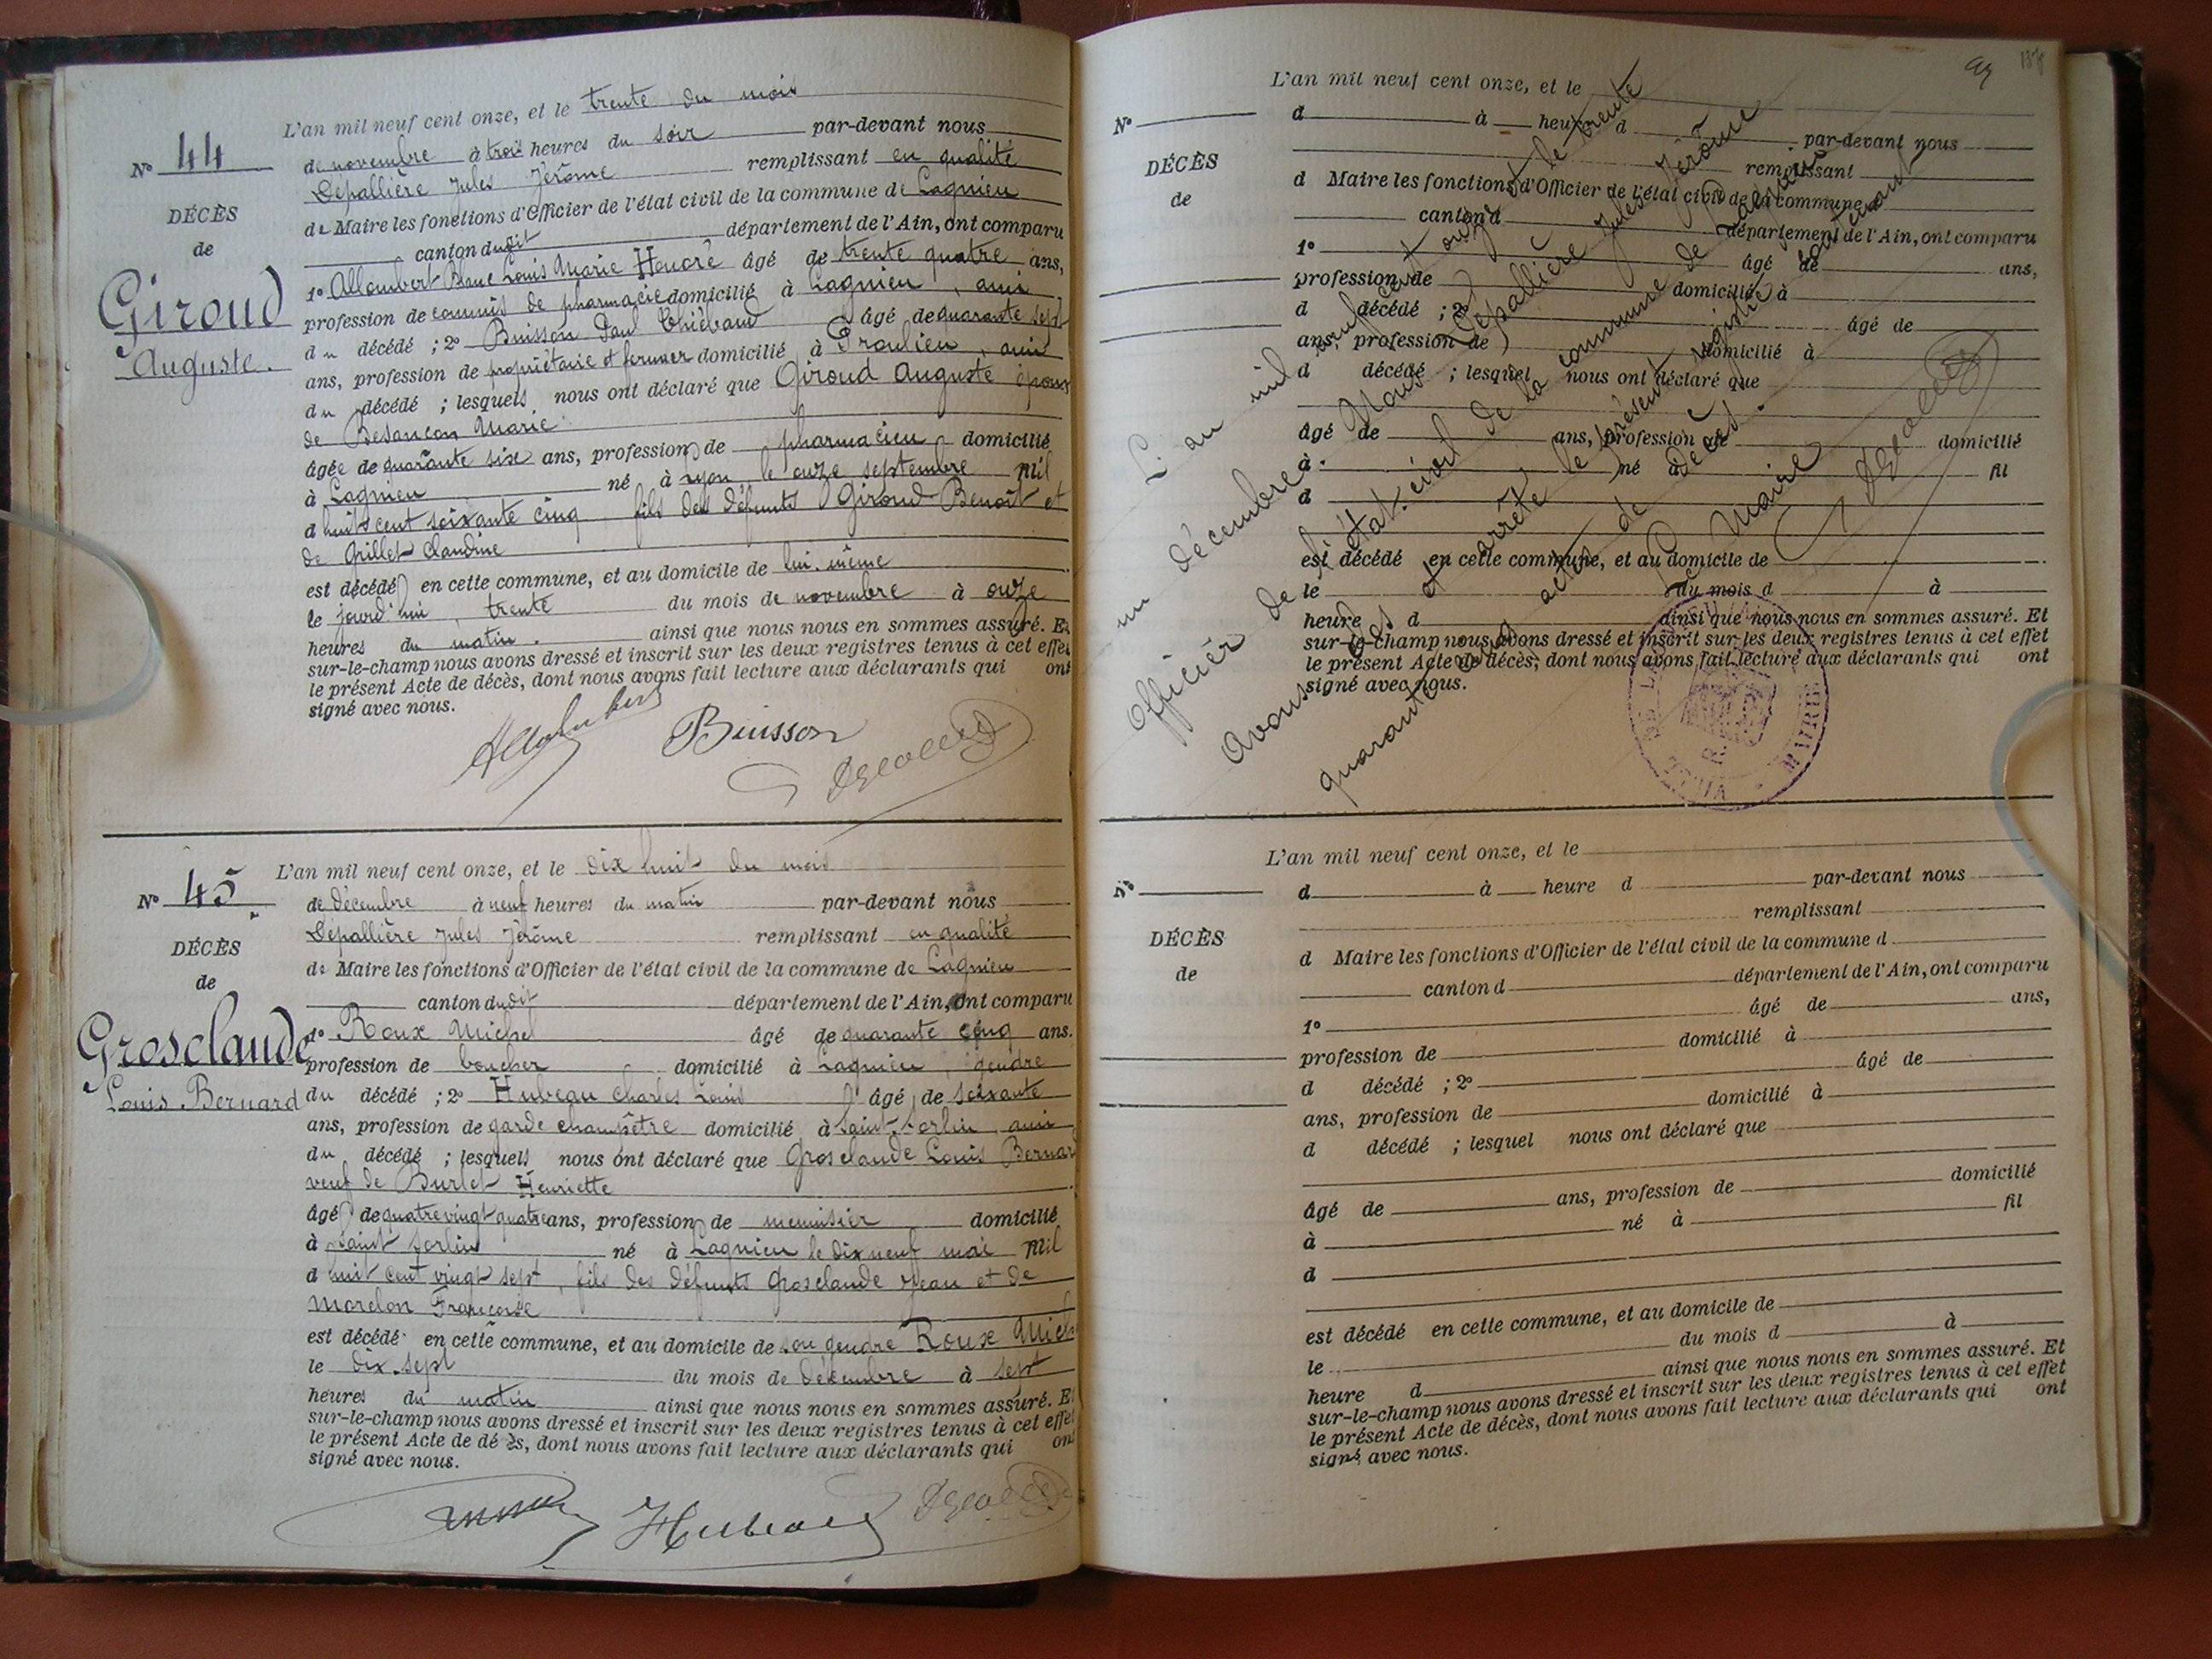 L'an mil neuf cent onze, et le trente du mois
N° 44
de novembre à trois heures du soir par-devant nous
Dépallière Jules Jérôme remplissant en qualité
DÉCÈS
de Maire les fonctions d'Officier de l'état civil de la commune de Lagnieu
de
canton dudit département de l'Ain, ont comparu
1° Allombert Louis Marie Honoré âgé de trente quatre ans,
Giroud
profession de commis de pharmacie domicilié à Lagnieu, ami
Auguste.
du décédé ; 2° Buisson Paul Thiébaud âgé de quarante sept
ans, profession de propriétaire et fermier domicilié à Proulieu, ami
du décédé ; lesquels nous ont déclaré que Giroud Auguste époux
de Besançon Marie
âgé de quarante six ans, profession de pharmacien domicilié
à Lagnieu né à Lyon le onze septembre mil
huit cent soixante cinq fils des défunts Giroud Benoît et
de Grillet Claudine
est décédé en cette commune, et au domicile de lui-même
le jourd'hui, trente du mois de novembre à onze
heures du matin. ainsi que nous nous en sommes assuré. Et
sur-le-champ nous avons dressé et inscrit sur les deux registres tenus à cet effet
le présent Acte de décès, dont nous avons fait lecture aux déclarants qui ont
signé avec nous.
Buisson
L'an mil neuf cent onze, et le dix huit du mois
N° 45
de décembre à neuf heures du matin par-devant nous
Dépallière Jules Jérôme remplissant en qualité
DÉCÈS
de Maire les fonctions d'Officier de l'état civil de la commune de Lagnieu
de
canton dudit département de l'Ain, ont comparu
Grosclaude
1° Roux Michel âgé de quarante cinq ans.
profession de boucher domicilié à Lagnieu, gendre
Louis Bernard
du décédé ; 2° Hubeau Charles Louis âgé de soixante
ans, profession de garde champêtre domicilié à Saint-Sorlin, ami
du décédé ; lesquels nous ont déclaré que Grosclaude Louis Bernar
veuf de Burlet Henriette
âgé de quatre vingt quatre ans, profession de menuisier domicilié
à Saint Sorlin né à Lagnieu le dix neuf mai mil
huit cent vingt sept, fils des défunts Grosclaude Jean et de
Morelon Françoise
est décédé en cette commune, et au domicile de son gendre Roux Mich
le dix-sept du mois de décembre à sept
heures du matin ainsi que nous nous en sommes assuré. Et
sur-le-champ nous avons dressé et inscrit sur les deux registres tenus à cet effet
le présent Acte de dé ès, dont nous avons fait lecture aux déclarants qui ont
signé avec nous.
Hubeau
L'an mil neuf cent onze, et le
N°
d à heure d par-devant nous
remplissant
DÉCÈS
d Maire les fonctions d'Officier de l'état civil de la commune d
de
canton d département de l'Ain, ont comparu
1° âgé de ans,
profession de domicilié à
d décédé ; 2° âgé de
ans, profession de domicilié à
d décédé ; lesquel nous ont déclaré que
âgé de ans, profession de domicilié
à né à fil
d
est décédé en cette commune, et au domicile de
le du mois d à
heure d ainsi que nous nous en sommes assuré. Et
sur-le-champ nous avons dressé et inscrit sur les deux registres tenus à cet effet
le présent Acte de décès, dont nous avons fait lecture aux déclarants qui ont
signé avec nous.
L'an mil neuf cent onze et le trente
un décembre Nous Dépallière Jules Jérôme
Officier de l'état-civil de la commune de Lagnieu
Avons clos et arrêté le présent registre contenant
quarante cinq actes de décès.
Le Maire
L'an mil neuf cent onze, et le
N°
d à heure d par-devant nous
remplissant
DÉCÈS
d Maire les fonctions d'Officier de l'état civil de la commune d
de
canton d département de l'Ain, ont comparu
1° âgé de ans,
profession de domicilié à
d décédé ; 2° âgé de
ans, profession de domicilié à
d décédé ; lesquel nous ont déclaré que
âgé de ans, profession de domicilié
à né à fil
d
est décédé en cette commune, et au domicile de
le du mois d à
heure d ainsi que nous nous en sommes assuré. Et
sur-le-champ nous avons dressé et inscrit sur les deux registres tenus à cet effet
le présent Acte de décès, dont nous avons fait lecture aux déclarants qui ont
signé avec nous.